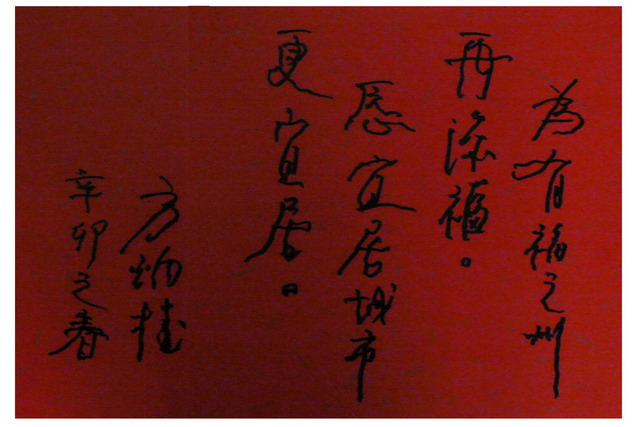 為有福之州
再添福。
愿宜居城市
更宜居。
方炳桂
辛卯之春